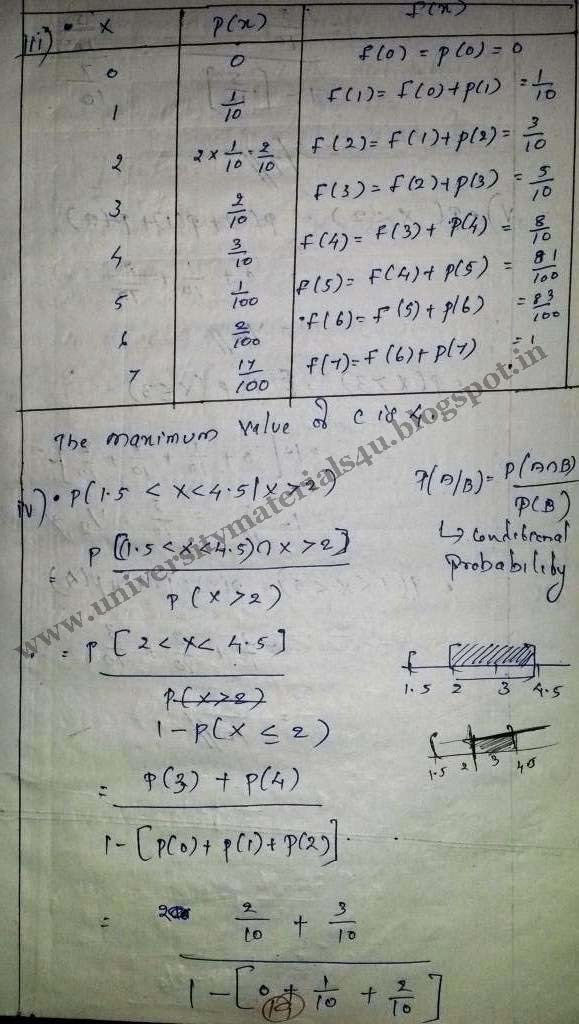 iii) • x p(x) f(x)
0 0 f(0) = p(0) = 0
1 1/10 f(1) = f(0) + p(1) = 1/10
2 2 × 1/10 = 2/10 f(2) = f(1) + p(2) = 3/10
3 2/10 f(3) = f(2) + p(3) = 5/10
4 3/10 f(4) = f(3) + p(4) = 8/10
5 1/100 f(5) = f(4) + p(5) = 81/100
6 2/100 f(6) = f(5) + p(6) = 83/100
7 17/100 f(7) = f(6) + p(7) = 1
The maximum value of c is 4.
iv) • P(1.5 < x < 4.5 | x > 2) P(A/B) = P(A∩B) / P(B)
↳ conditional probability
= P[(1.5 < x < 4.5) ∩ x > 2] / P(x > 2)
= P[2 < x < 4.5] / P(x > 2)
1 - P(x ≤ 2)
1.5 2 3 4.5
1.5 2 3 4.5
= P(3) + P(4) / 1 - [P(0) + P(1) + P(2)]
= 2/10 + 3/10 / 1 - [0 + 1/10 + 2/10]
www.universitymaterials4u.blogspot.in